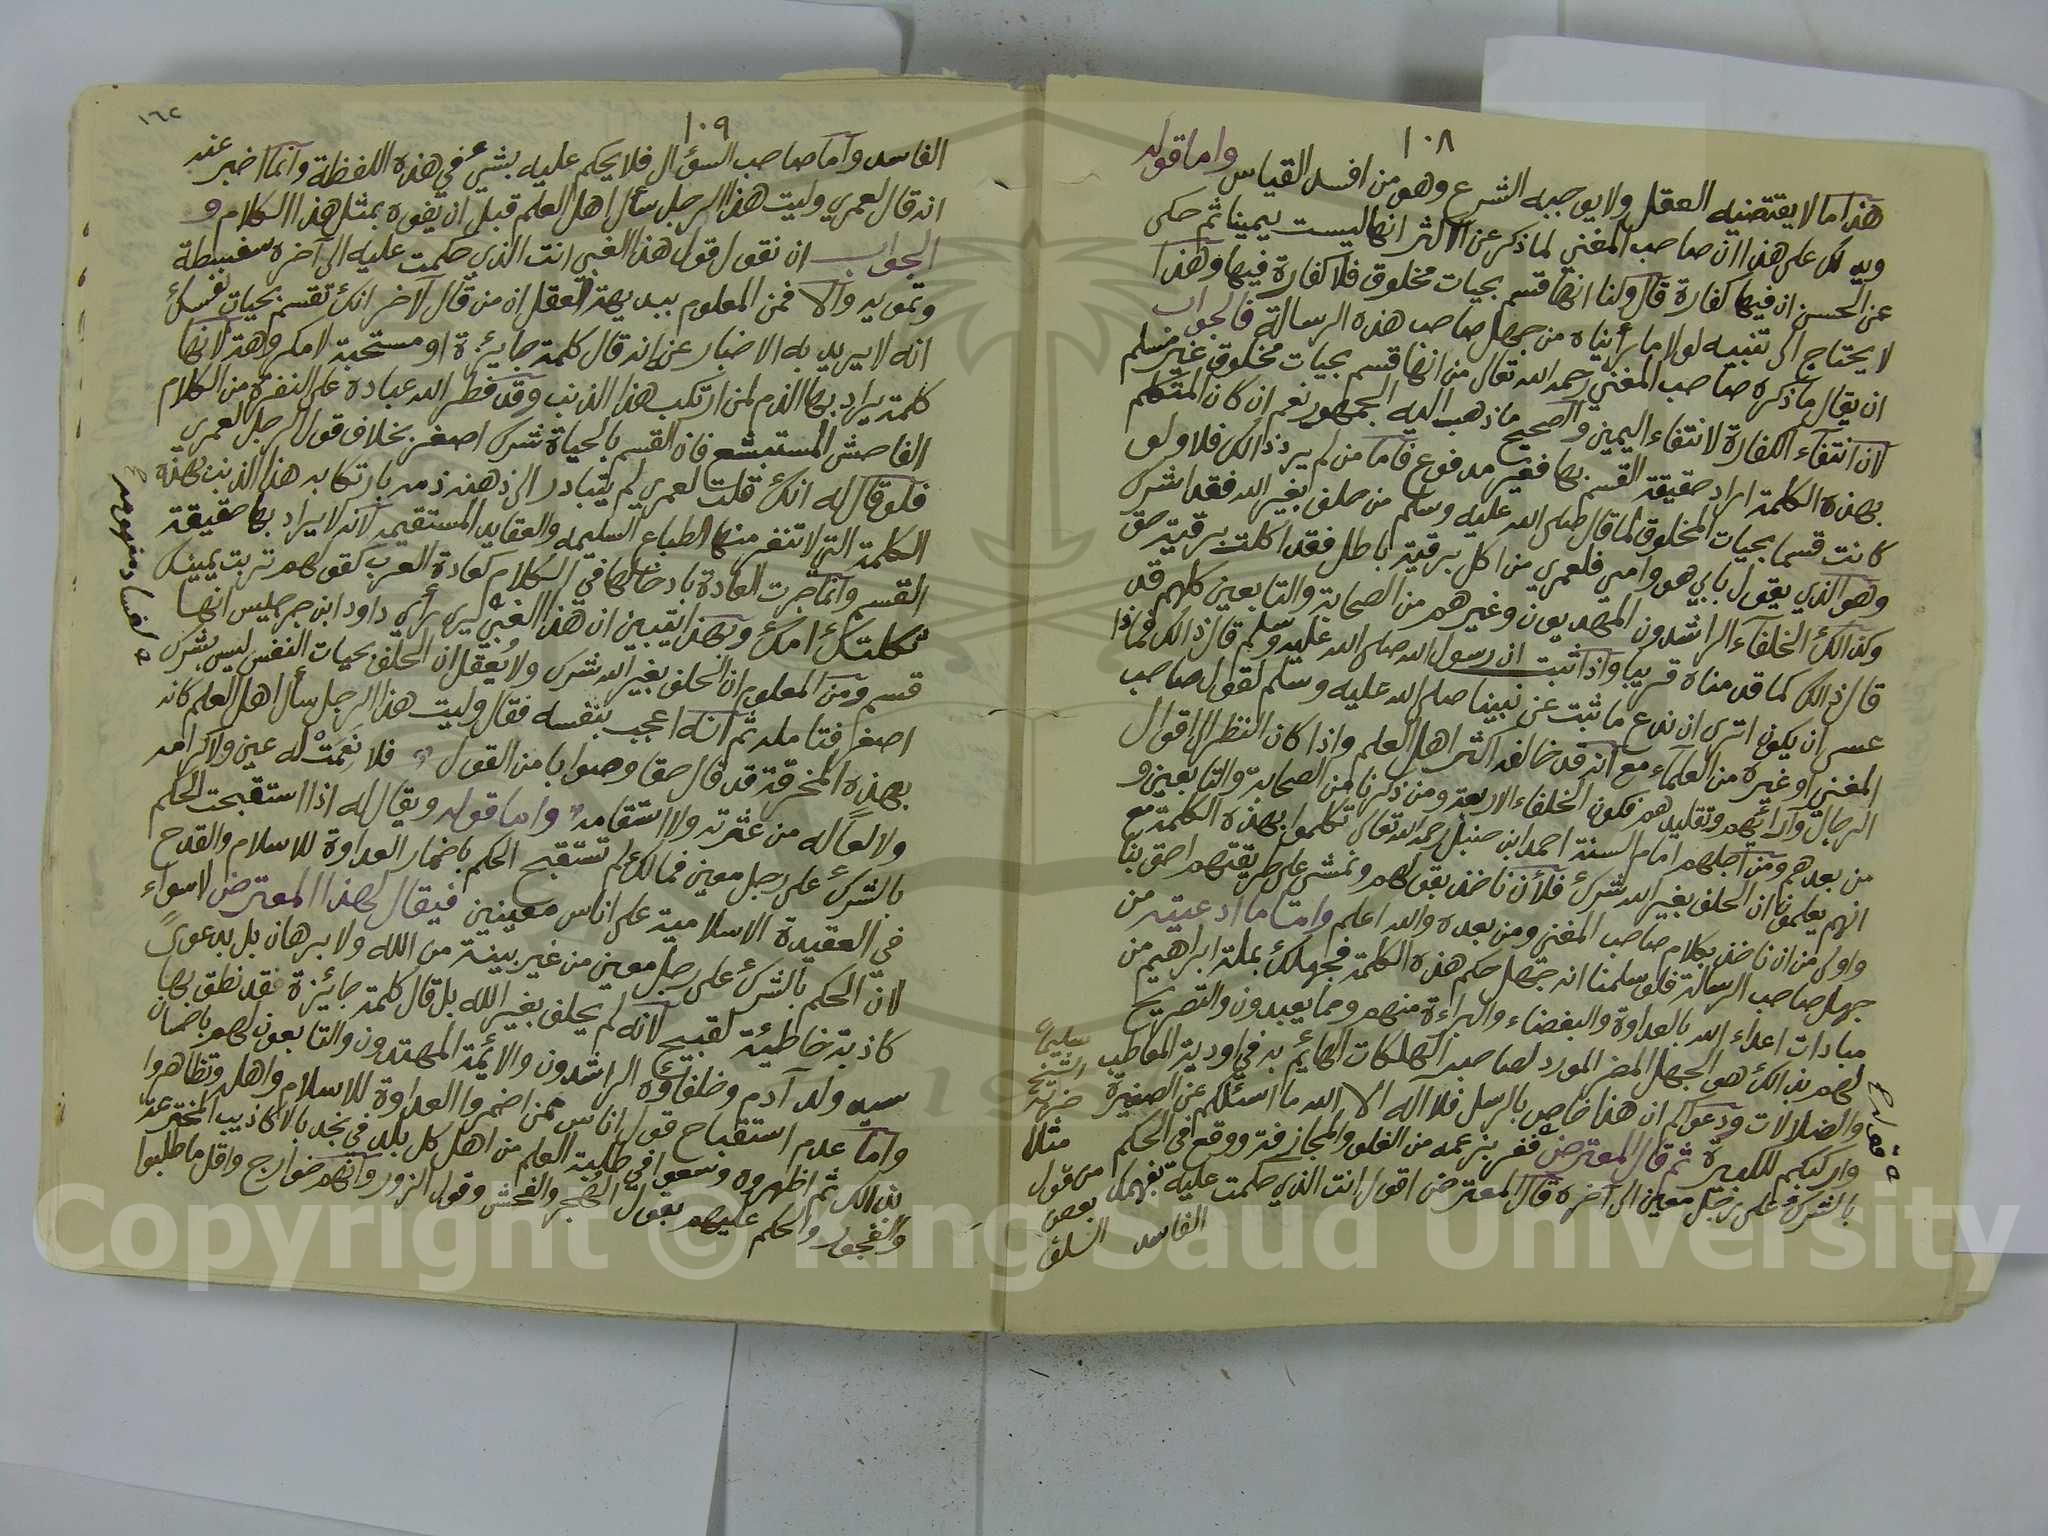 ١٠٨
هذا ما لا يقتضيه العقل ولا يوجبه الشرع وهو من افسد القياس واما قوله
ويدلك على هذا ان صاحب المغني لما ذكر عن الاكثر انها ليست يمينا ثم حكى
عن الحسن ان فيها كفارة قال ولنا انها قسم بحيات مخلوق فلا كفارة فيها وهذا
لا يحتاج الى تنبيه لولا ما رأيناه من جهل صاحب هذه الرسالة فالجواب
ان يقال ما ذكره صاحب المغني رحمه الله تعالى من انها قسم بحيات مخلوق غير مسلم
لان انتفاء الكفارة لانتفاء اليمين والصحيح ما ذهب اليه الجمهور نعم ان كان المتكلم
بهذه الكلمة اراد حقيقة القسم بها فغير مدفوع فاما من لم يرد ذالك فلا ولو
كانت قسما بحيات المخلوق لما قال صلى الله عليه وسلم من حلف بغير الله فقد اشرك
وهو الذي يقول بابي هو وامي فلعمري من اكل برقية باطل فقد اكلت برقية حق
وكذالك الخلفاء الراشدون المهديون وغيرهم من الصحابة والتابعين كلهم قد
قال ذالك كما قدمناه قريبا واذا ثبت ان رسول الله صلى الله عليه وسلم قال ذالك فماذا
عسى ان يكون اترى ان ندع ما ثبت عن نبينا صلى الله عليه وسلم لقول صاحب
المغني او غيره من العلماء مع انه قد خالفه اكثر اهل العلم واذا كان النظر الى اقوال
الرجال وآرائهم وتقليدهم فكون الخلفاء الاربعة ومن ذكرنا من الصحابة والتابعين و
من بعدهم ومن اجلهم امام السنة احمد ابن حنبل رحمه الله تعالى تكلموا بهذه الكلمة مع
انهم يعلمون ان الحلف بغير الله شرك فلأن ناخذ بقولهم ونمشي على طريقتهم احق بنا
واولى من ان ناخذ بكلام صاحب المغني ومن بعده والله اعلم واما ما ادعيته من
جهل صاحب الرسالة فلو سلمنا انه جهل حكم هذه الكلمة فجهلك بملة ابراهيم من
مبادات اعداء الله بالعداوة والبغضاء والبراءة منهم ومما يعبدون والتصريح
لهم بذالك هو الجهل المضر المورد لصاحبه الهلكات الهائم به في اودية المعاطب
والضلالات ودعواكم ان هذا خاص بالرسل فلا اله الا الله ما اسئلكم عن الصغيرة
واركبكم للكبيرة ثم قال المعترض ففر بزعمه من الغلو والمجازفة ووقع في الحكم
بالشرك على رجل معين الى آخره قال المعترض اقول انت الذي حكمت عليه بفهمك
الفاسد
مثلا
من قول
بعض
السلف
١٠٩
١٦٢
الفاسد واما صاحب السؤال فلا يحكم عليه بشيء في هذه اللفظة وانما اخبر عنه
انه قال لعمري وليت هذا الرجل سأل اهل العلم قبل ان يفوه بمثل هذا الكلام و
الجواب ان نقول قول هذا الغبي انت الذي حكمت عليه الى آخره سفسطة
وتمويه والا فمن المعلوم ببديهة العقل ان من قال لآخر انك تقسم بحيات نفسك
انه لا يريد به الاخبار عن انه قال كلمة جائزة او مستحبة لا مكروهة لانها
كلمة يراد بها الذم لمن ارتكب هذا الذنب وقد فطر الله عباده على النفرة من الكلام
الفاحش المستبشع فان القسم بالحياة شرك اصغر بخلاف قول الرجل لعمري
فلو قال له انك قلت لعمري لم يتبادر الى ذهنه ذمه بارتكابه هذا الذنب بهذه
الكلمة التي لا تنفر منها الطباع السليمه والعقايد المستقيمه لانه لا يراد بها حقيقة
القسم وانما جرت العادة بادخالها في الكلام كعادة العرب كقولهم تربت يمينك
ثكلتك امك وبهذا تبين ان هذا الغبي يرى رأي داود ابن جرجيس انها
قسم ومن المعلوم ان الحلف بغير الله شرك ولا يعقل ان الحلف بحيات النفس ليس بشرك
اصغر فتامله ثم انه اعجب بنفسه فقال وليت هذا الرجل سأل اهل العلم كانه
بهذه المخرقة قد قال حقا وصوابا من القول فلا نعمت له عين ولا كرامه
ولا لعاً له من عثرته ولا استقامه واما قوله ويقال له اذا استقبحت الحكم
بالشرك على رجل معين فمالك لم تستقبح الحكم باضمار العداوة للاسلام والقدح
في العقيدة الاسلامية على اناس معينين فيقال لهذا المعترض لا سواء
لان الحكم بالشرك على رجل معين من غير بينة من الله ولا برهان بل بدعوى
كاذبة خاطئة لقبيح لانه لم يحلف بغير الله بل قال كلمة جائزة فقد نطق بها
سيد ولد آدم وخلفاؤه الراشدون والائمة المهتدون والتابعون لهم باحسان
واما عدم استقباح قول اناس ممن اضمروا العداوة للاسلام واهله وتظاهروا
بذالك ثم اظهروه وسعوا في طلبة العلم من اهل كل بلد في نجد بالاكاذيب المخترعة
والفجور والحكم عليهم بقول الهجر والفحش وقول الزور وانهم خوارج واقل ما طلبوا